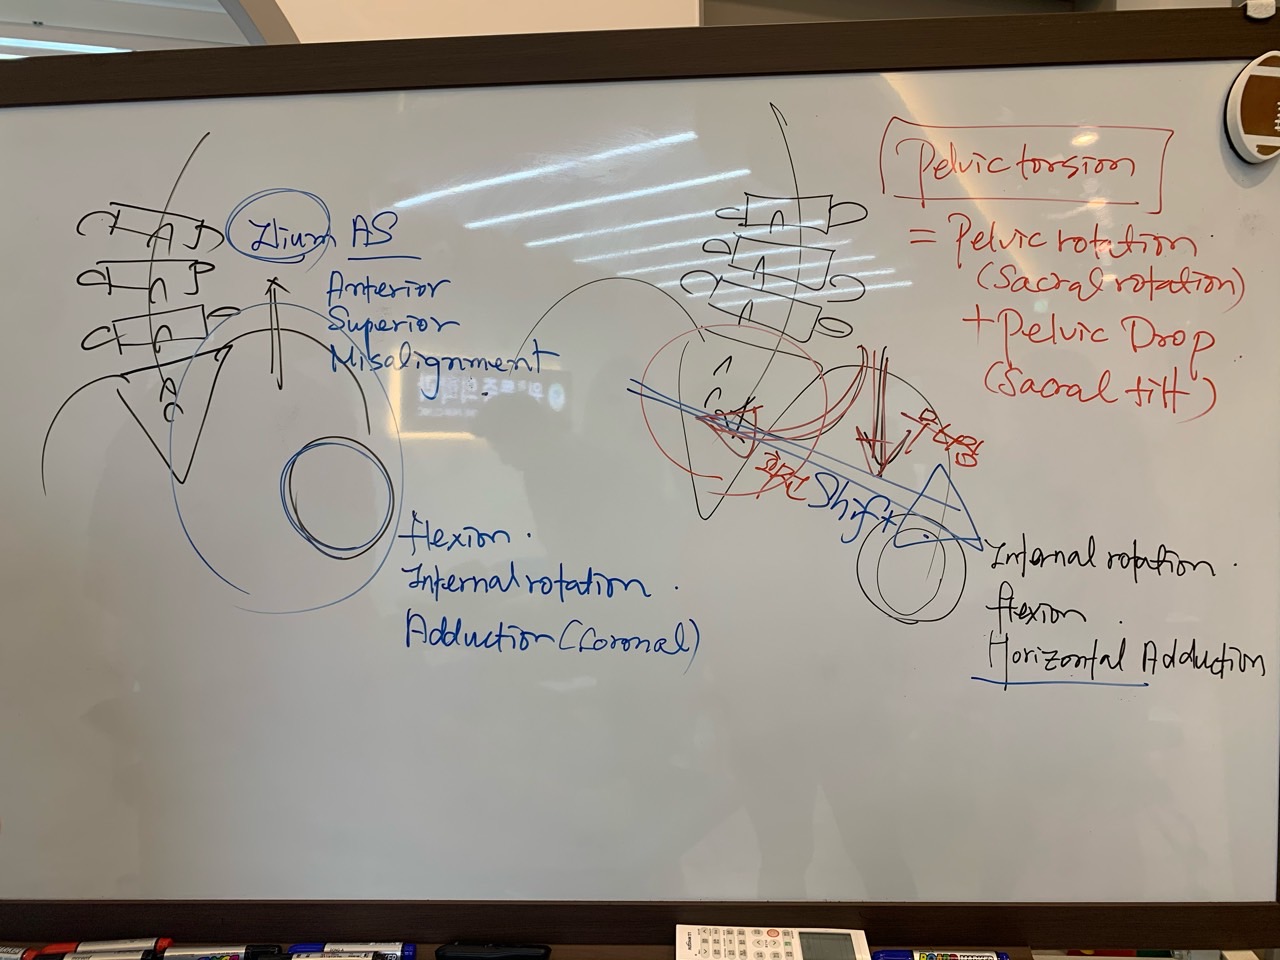 Ilium AS
Anterior
Superior
Misalignment
flexion.
Internal rotation.
Adduction (Coronal)
Pelvic torsion
= Pelvic rotation
(Sacral rotation)
+ Pelvic Drop
(Sacral tilt)
Shift
Internal rotation.
flexion.
Horizontal Adduction